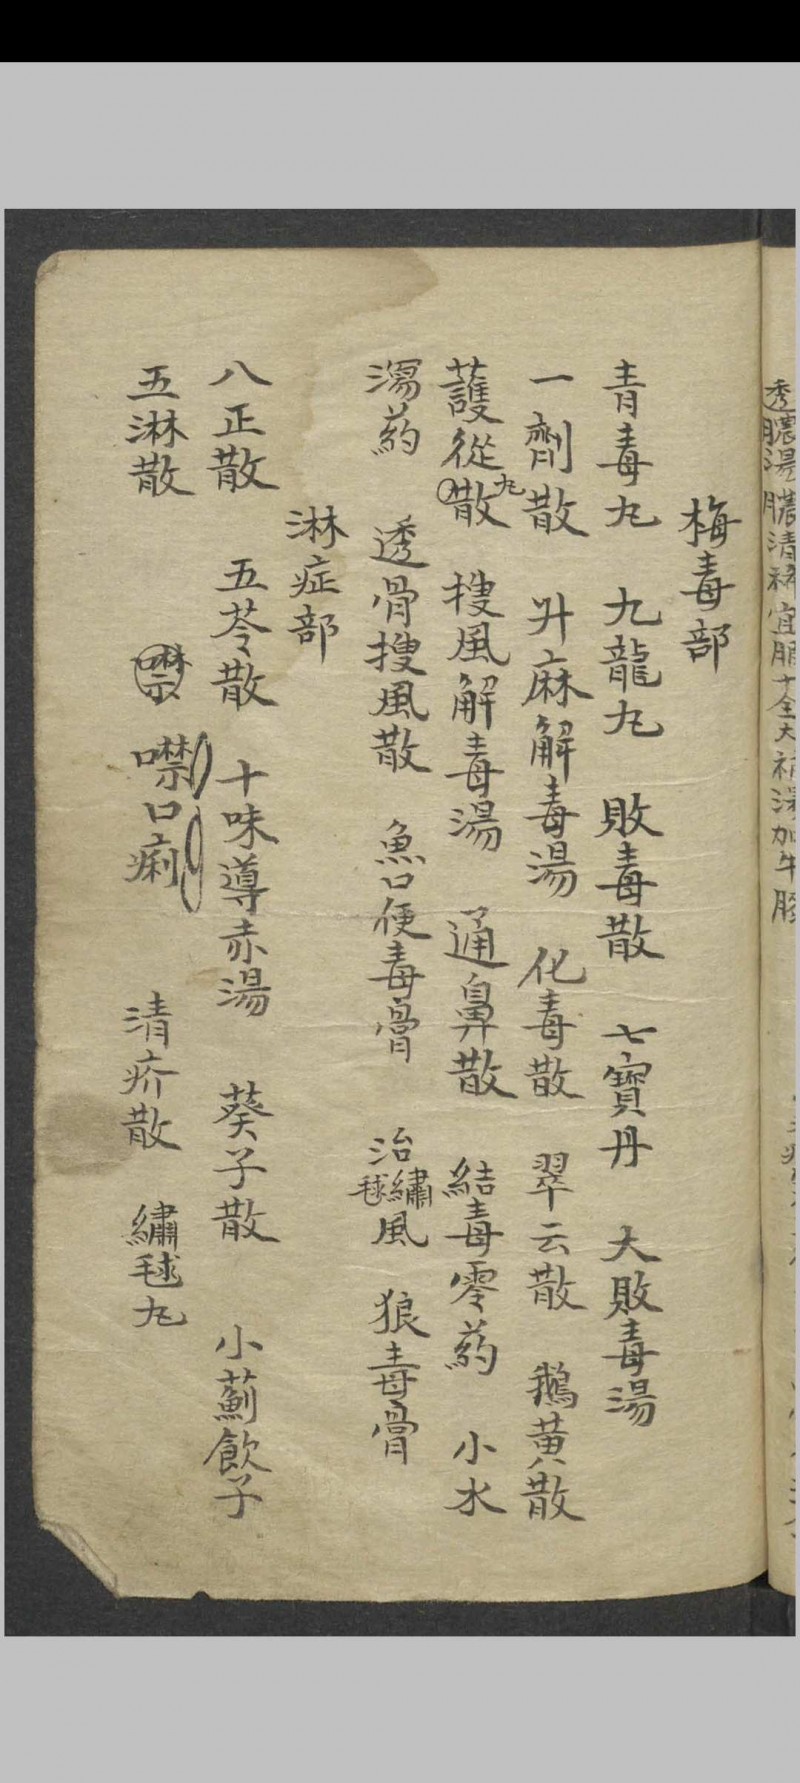 透膿湯 膿清稀宜服十全大補湯加牛膝
梅毒部
青毒丸 九龍丸 敗毒散 七寶丹 大敗毒湯
一劑散 升麻解毒湯 化毒散 翠云散 鵝黄散
護從散丸 搜風解毒湯 通鼻散 結毒零药 小水
湯药 透骨搜風散 魚口便毒膏 治繡毬風 狼毒膏
淋症部
八正散 五苓散 十味導赤湯 葵子散 小薊飲子
五淋散 噤 噤口痢 清疥散 繡毬丸